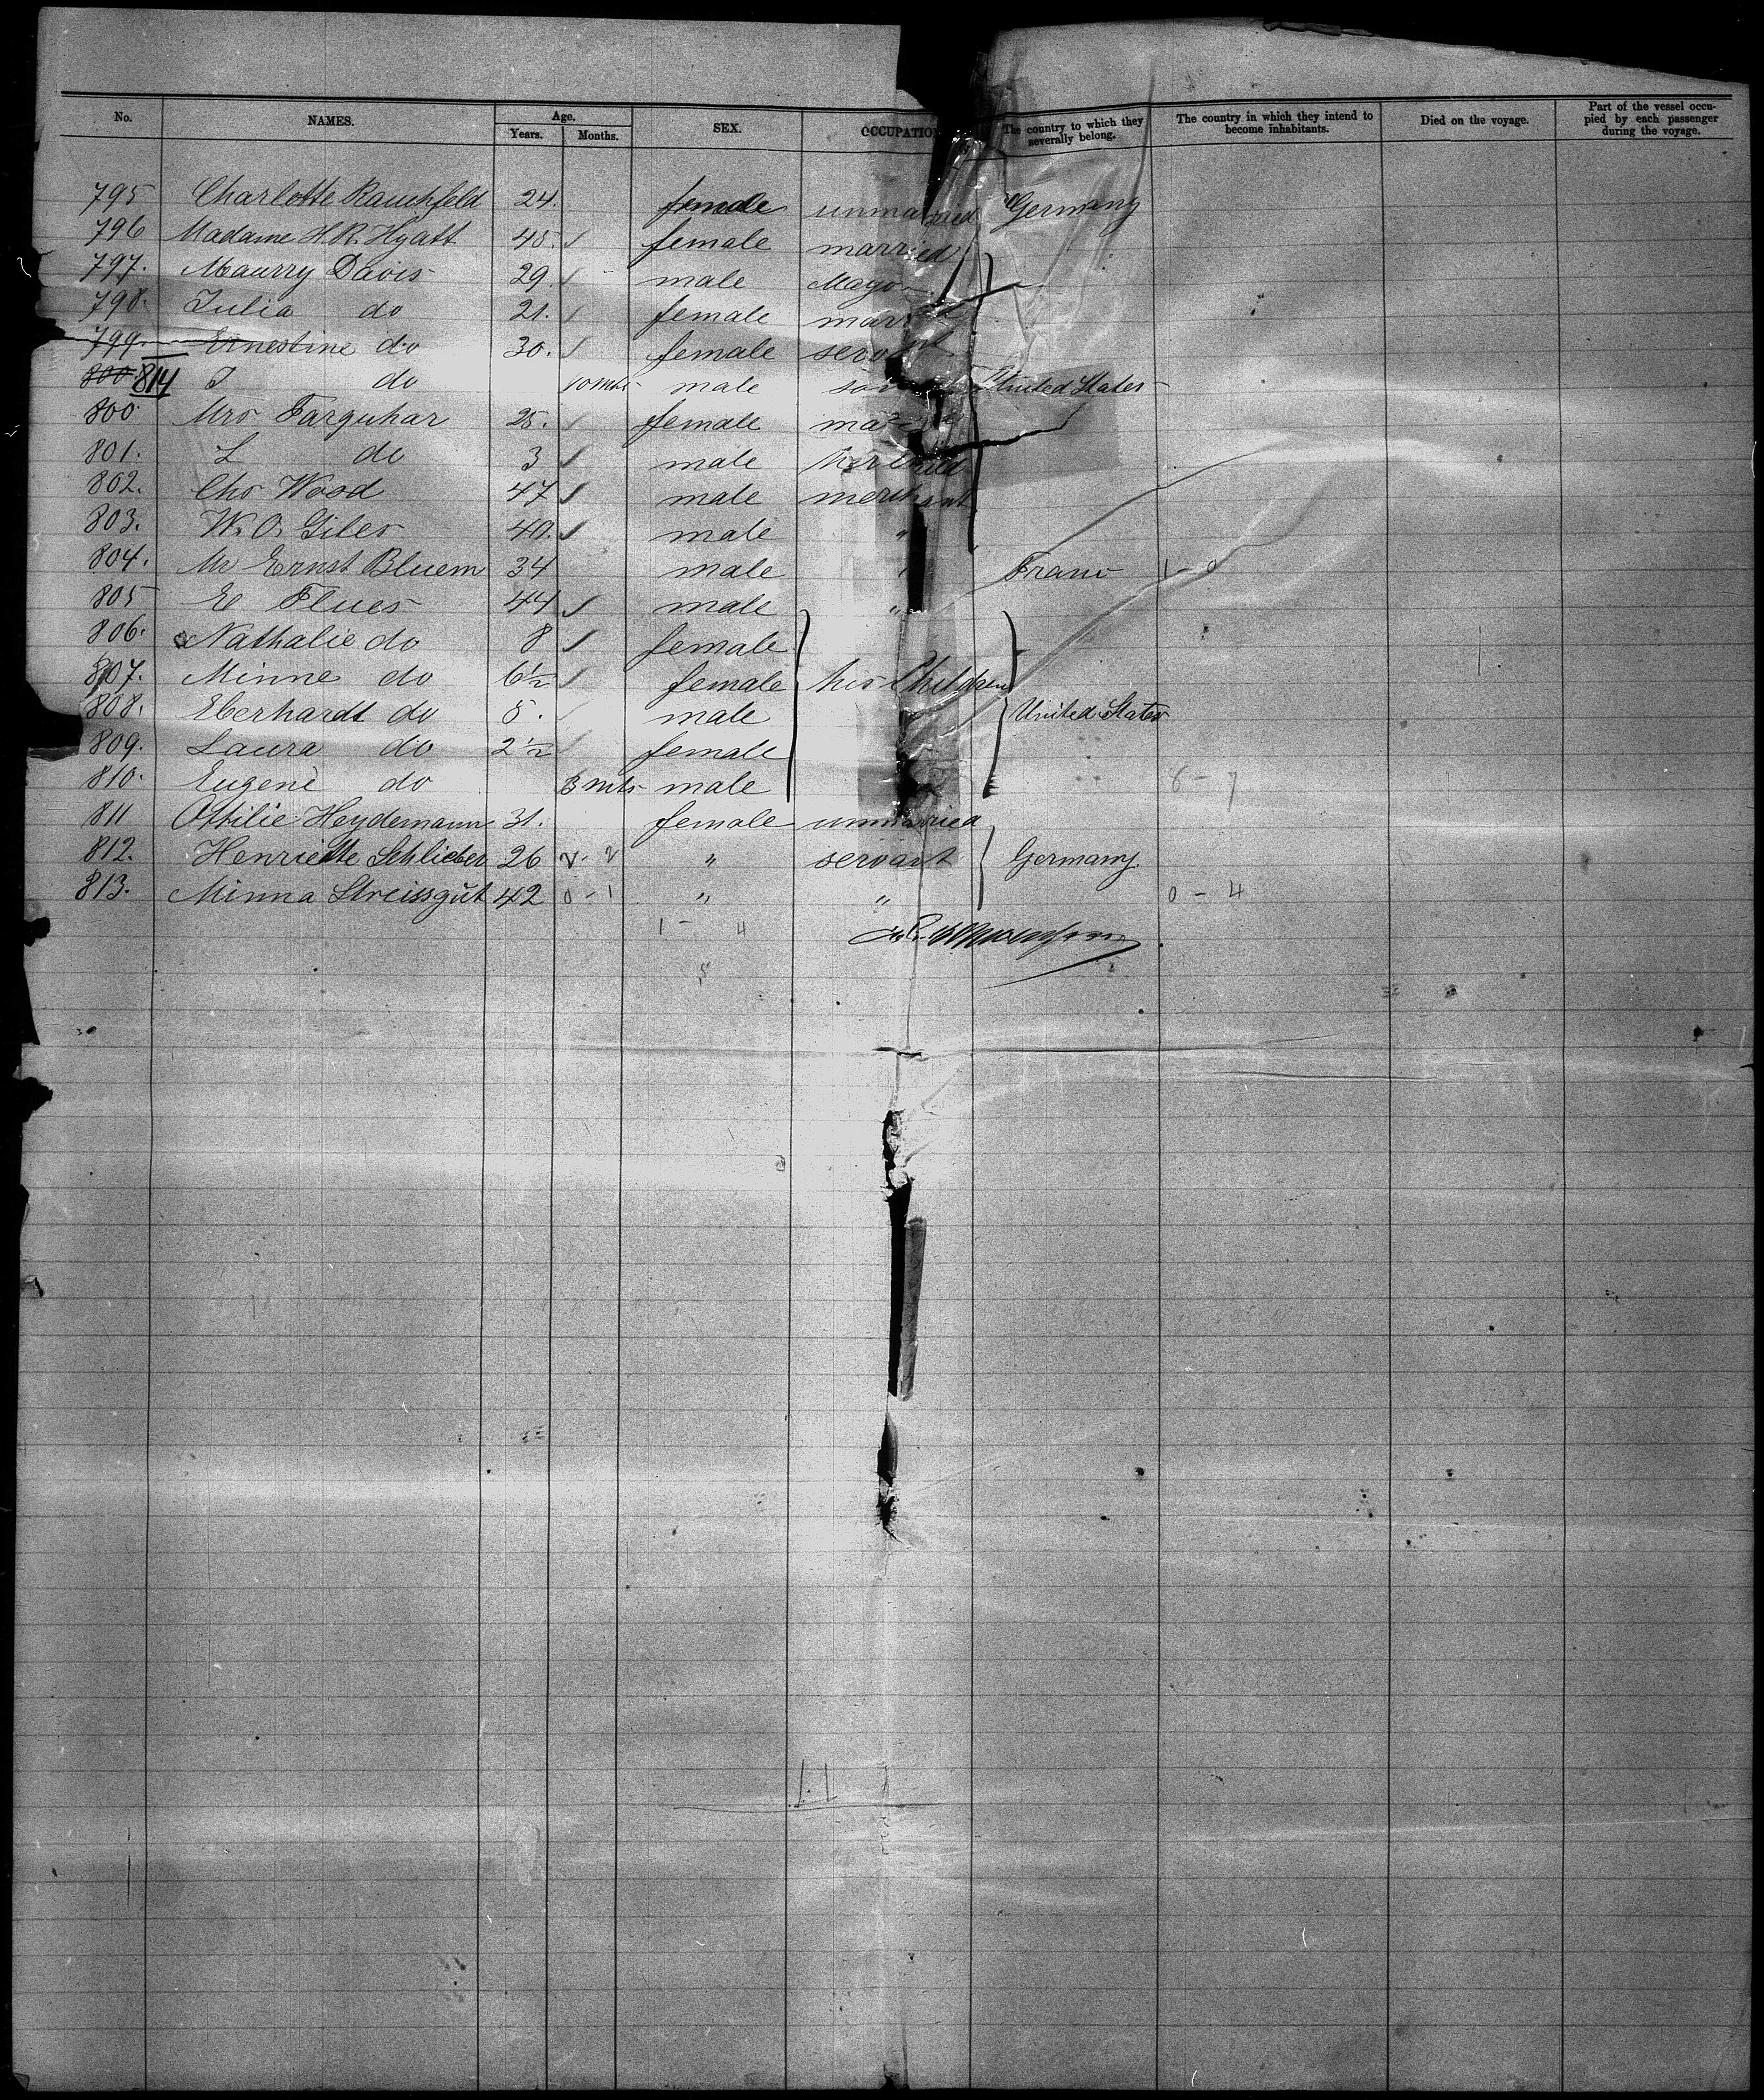 No. NAMES. Age. Years. Months. SEX. OCCUPATION The country to which they severally belong. The country in which they intend to become inhabitants. Died on the voyage. Part of the vessel occupied by each passenger during the voyage.
795 Charlotte Rauchfeld 24. female unmarried Germany
796 Madame H. R. Hyatt 45. female married
797. Maurry Davis 29. male
798. Julia do 21. female married
799. Ernestine do 30. female servant
800. 814 I do 10 mts male United States
800 Mrs Farquhar 25. female
801. L do 3 male her child
802. Chs Wood 47 male merchant
803. W. O. Giles 40. male "
804. Mr Ernst Bluem 34 male " 1 - 0
805 E Flues 44 male "
806. Nathalie do 8 female
807. Minne do 6½ female his Children
808. Eberhardt do 5. male United States
809. Laura do 2½ female
810. Eugene do 3 mts male 8 - 7
811 Ottilie Heydemann 31. female unmarried
812. Henriette Schlieber 26 2 - 2 " servant Germany
813. Minna Streissgut 42 0 - 1 " " 0 - 4
1 - 4